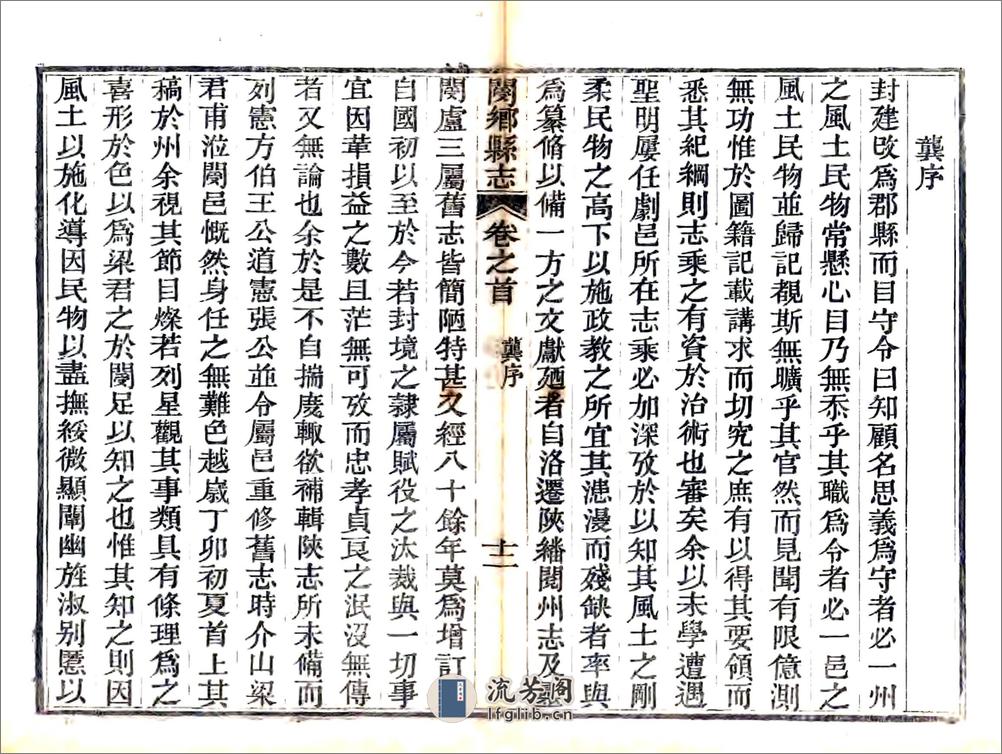 龔序
封建改爲郡縣而目守令曰知顧名思義爲守者必一州
之風土民物常懸心目乃無忝乎其職爲令者必一邑之
風土民物並歸記覩斯無曠乎其官然而見聞有限億測
無功惟於圖籍記載講求而切究之庶有以得其要領而
悉其紀綱則志乘之有資於治術也審矣余以末學遭遇
聖明屢任劇邑所在志乘必加深攷於以知其風土之剛
柔民物之高下以施政教之所宜其漶漫而殘缺者率與
爲纂脩以備一方之文獻廼者自洛遷陝繙閱州志及靈
閿鄉縣志 卷之首 龔序 十二
閿盧三屬舊志皆簡陋特甚又經八十餘年莫爲增訂
自國初以至於今若封境之隸屬賦役之汰裁與一切事
宜因革損益之數且茫無可攷而忠孝貞良之泯沒無傳
者又無論也余於是不自揣度輙欲補輯陝志所未備而
列憲方伯王公道憲張公並令屬邑重修舊志時介山梁
君甫涖閿邑慨然身任之無難色越歲丁卯初夏首上其
稿於州余視其節目燦若列星觀其事類具有條理爲之
喜形於色以爲梁君之於閿足以知之也惟其知之則因
風土以施化導因民物以盡撫綏微顯闡幽旌淑别慝以
流芳閣
lfglib.cn